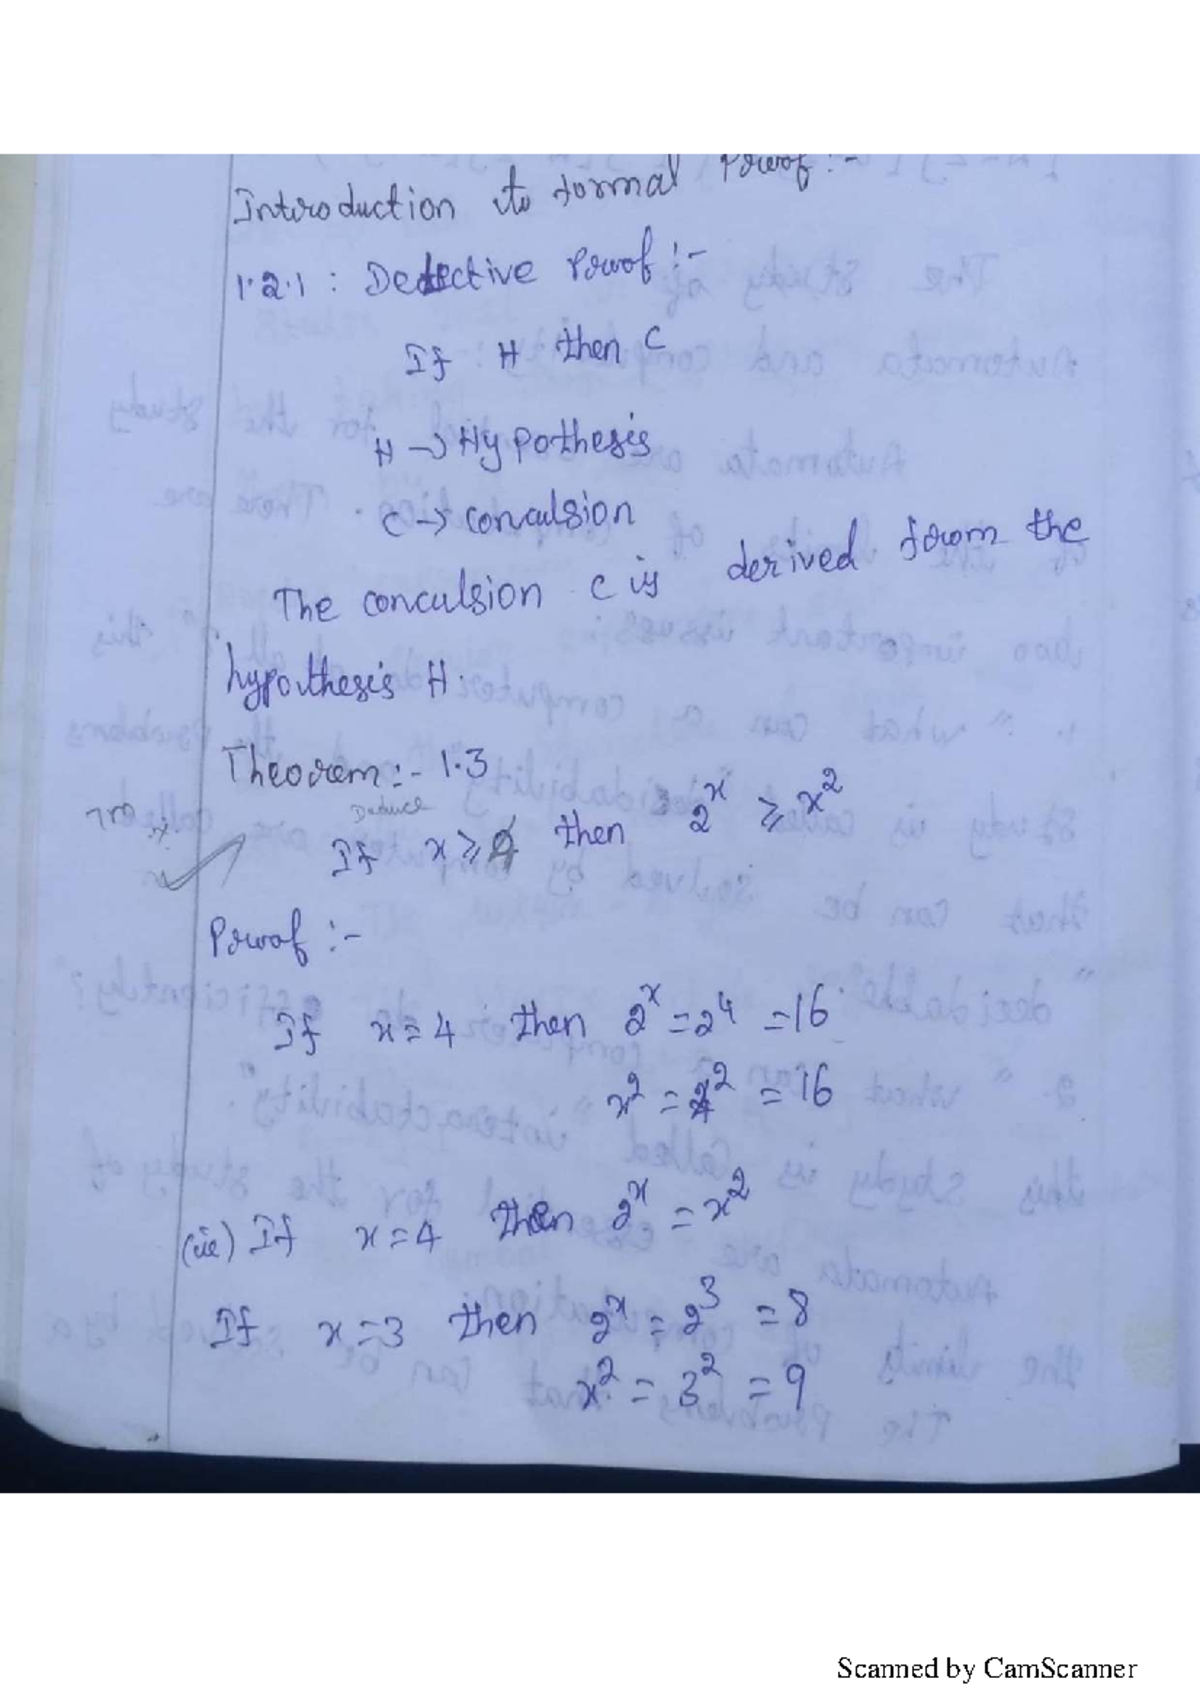 Introduction to formal Proof :-
1.2.1 : Dedective Proof :-
If H then C
H → Hypothesis
C → conculsion
The conculsion C is derived from the
hypothesis H.
Theorem :- 1.3
Deduce
If x ≥ 4 then 2^x ≥ x^2
Proof :-
If x = 4 then 2^x = 2^4 = 16
x^2 = 4^2 = 16
(ie) If x = 4 then 2^x = x^2
If x = 3 then 2^x = 2^3 = 8
x^2 = 3^2 = 9
Scanned by CamScanner